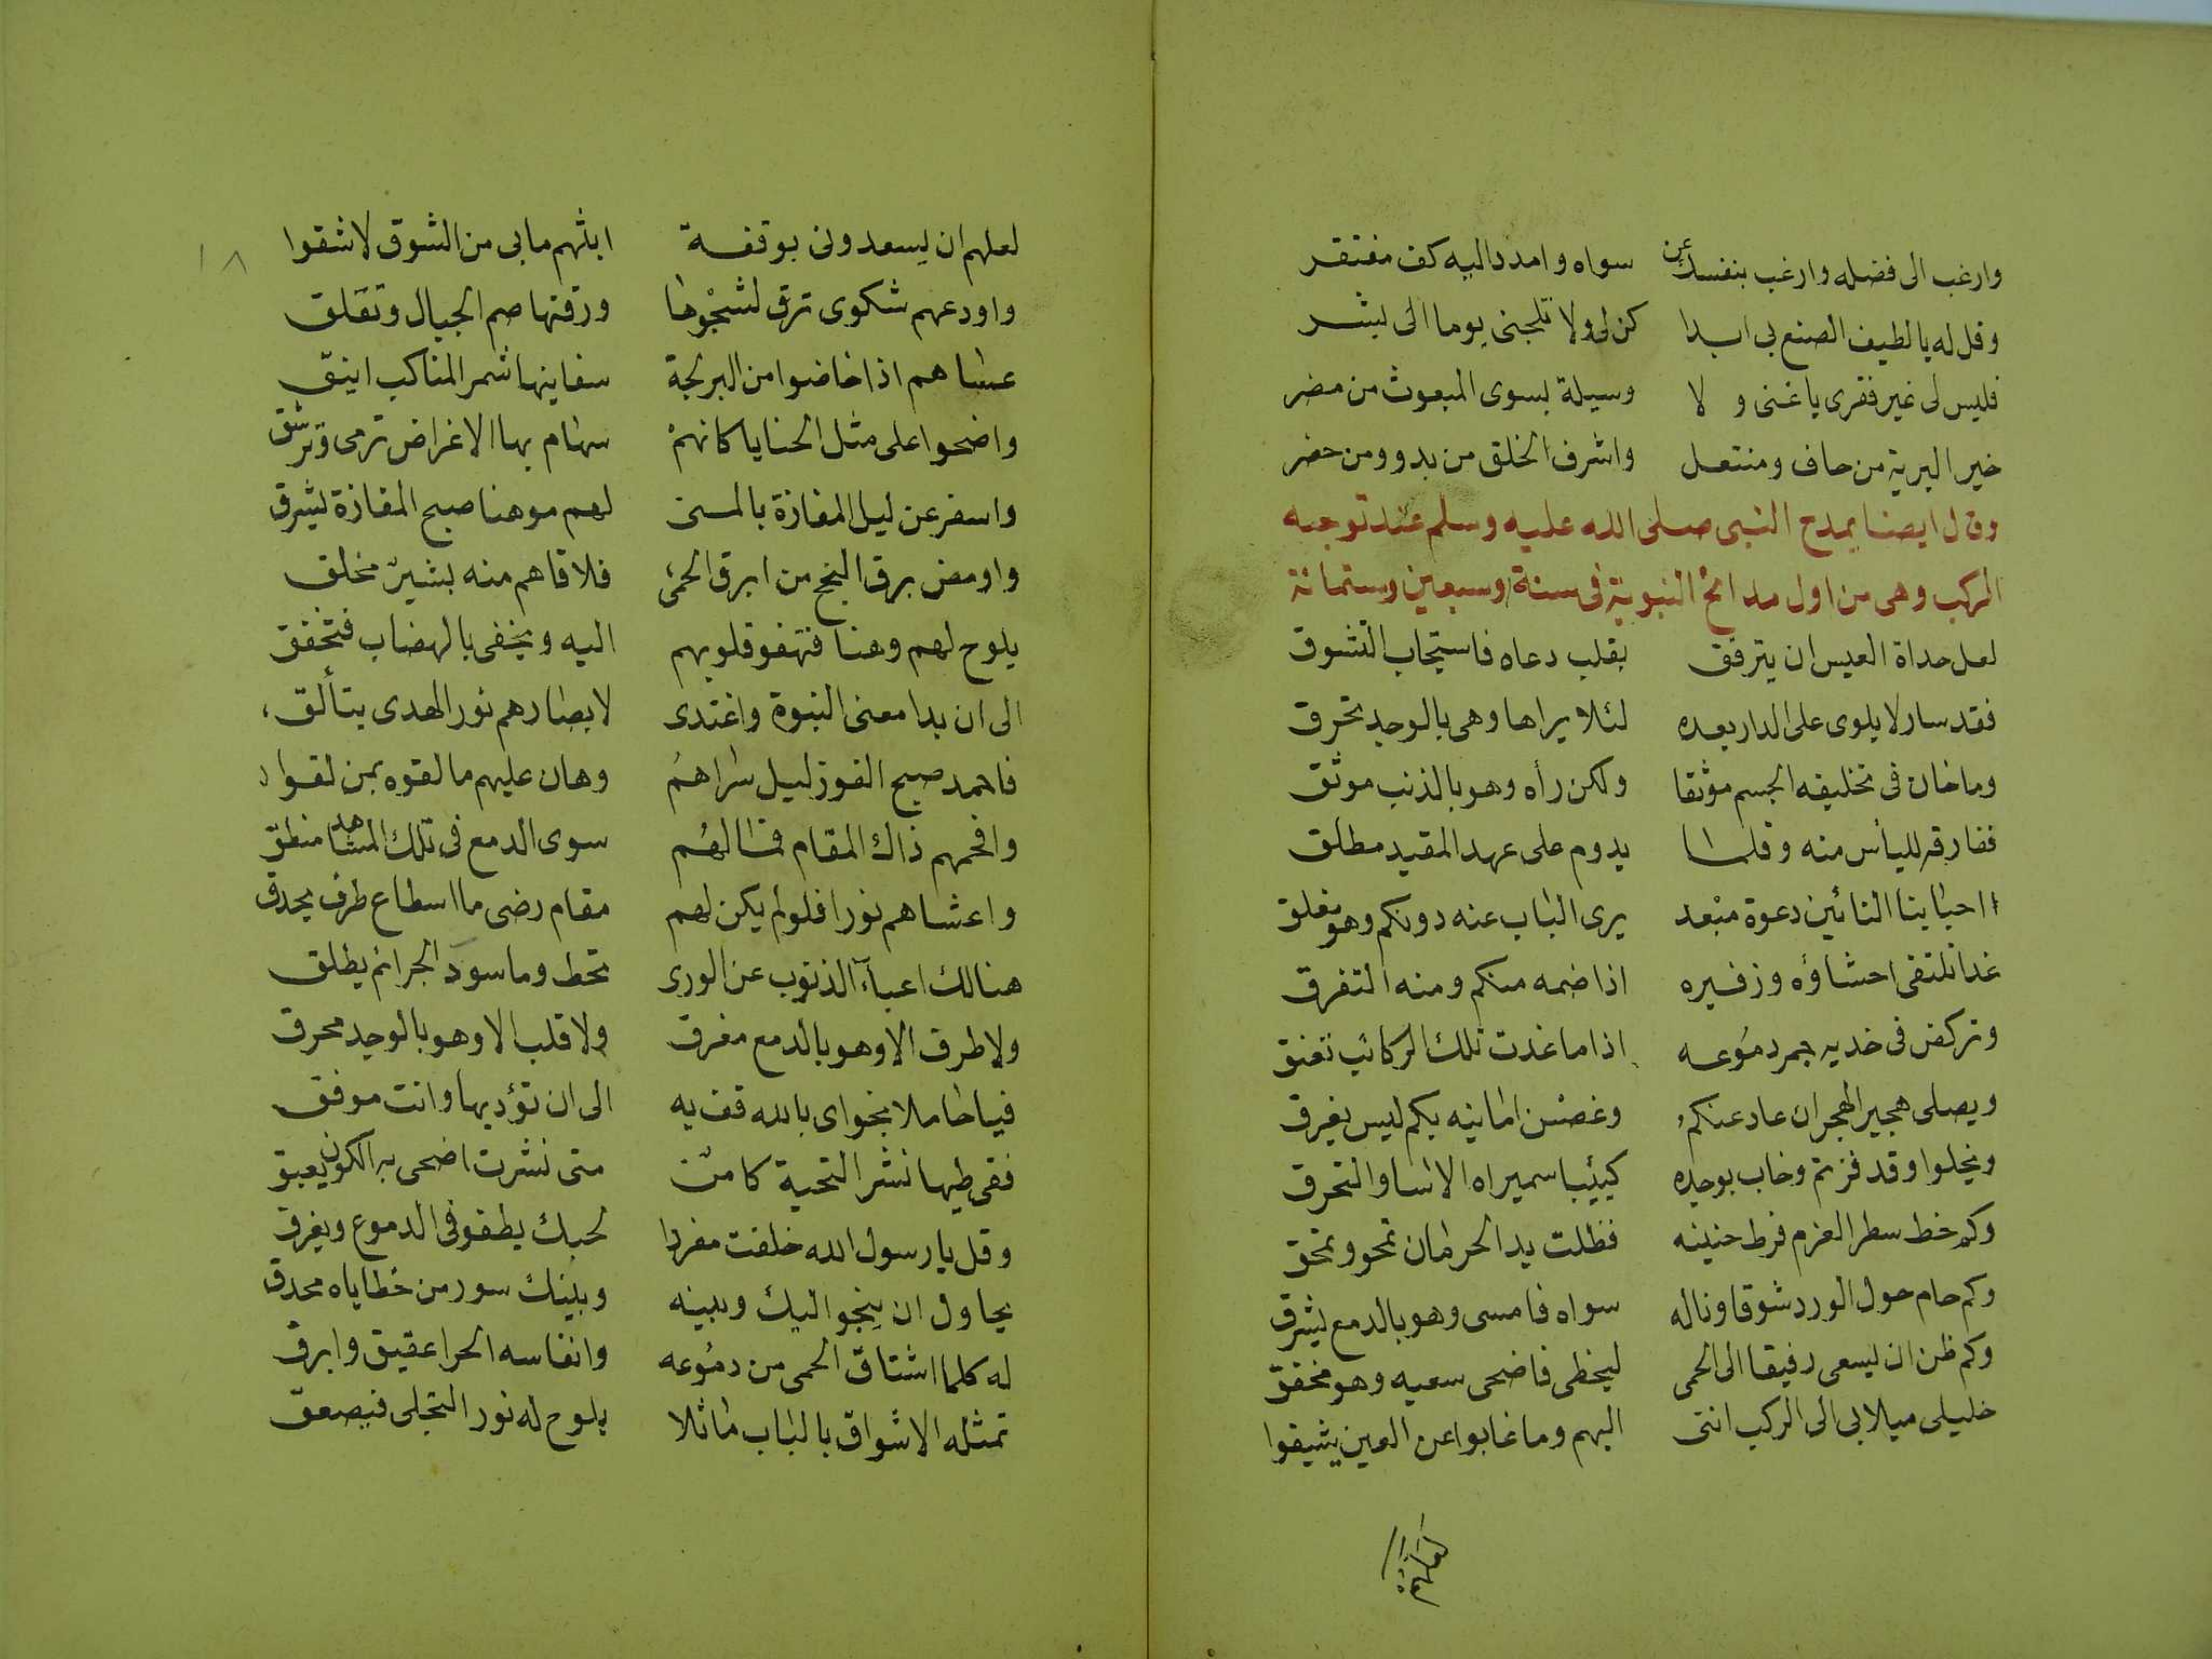 وارغب الى فضله وارغب بنفسك عن سواه وامدد اليه كف مفتقر
وقل له يا لطيف الصنع بي ابدا كن لي ولا تلجني يوما الى بشر
فليس لي غير فقري يا غنى و لا وسيلة بسوى المبعوث من مضر
خير البرية من حاف ومنتعل واشرف الخلق من بدو ومن حضر
وقال ايضا يمدح النبي صلى الله عليه وسلم عند توجه
الركب وهي من اول مدائح النبوية في سنة وسبعين وستمائة
لعل حداة العيس ان يترفق بقلب دعاه فاستجاب التشوق
فقد سار لا يلوى على الدار بعده لئلا يراها وهي بالوجد تحرق
وما خان في تخليفه الجسم موثقا ولكن رأه وهو بالذنب موثق
ففارقه لليأس منه وقلما يدوم على عهد المقيد مطلق
ااحبابنا النائين دعوة مبعد يرى الباب عنه دونكم وهو مغلق
غدا تلتقى احشاؤه وزفيره اذا ضمه منكم ومنه التفرق
وتركض في خديه حمر دموعه اذا ما غدت تلك الركائب تعنق
ويصلى هجير الهجران عاد عنكم وغصن امانيه بكم ليس يغرق
ويخلوا وقد فزتم وخاب بوجده كئيبا سميراه الاسا والتحرق
وكم خط سطر العزم فرط حنينه فظلت يد الحرمان تمحو وتمحق
وكم حام حول الورد شوقا وناله سواه فامسى وهو بالدمع يشرق
وكم ظن ان يسعى رفيقا الى الحمى ليحظى فاضحى سعيه وهو مخفق
خليلي ميلا بي الى الركب انني اليهم وما غابوا عن العين شيقوا
لعلهم ان
١٨
لعلهم ان يسعدونى بوقفة ابثهم ما بى من الشوق لا شقوا
واودعهم شكوى ترق لشجوها ورقتها صم الجبال وتقلق
عساهم اذا خاضوا من البر لجة سفاينها شم المناكب اينق
واضحوا على مثل الحنايا كانهم سهام بها الاغراض ترمى وترشق
واسفر عن ليل المفازة بالمنى لهم موهنا صبح المفازة يشرق
واومض برق النجح من ابرق الحمى فلاقاهم منه بشير مخلق
يلوح لهم وهنا فتهفو قلوبهم اليه ويخفى بالهضاب فتخفق
الى ان بدا معنى النبوة واغتدى لابصارهم نور الهدى يتألق
فاحمد صبح الفوز ليل سراهم وهان عليهم ما لقوه بمن لقوا
وافحمهم ذاك المقام فما لهم سوى الدمع في تلك المشاهد منطق
واعشاهم نورا فلو لم يكن لهم مقام رضى ما اسطاع طرف يحدق
هنالك اعباء الذنوب عن الورى تحط وما سود الجرائم يطلق
ولا طرف الا وهو بالدمع مغرق ولا قلب الا وهو بالوجد محرق
فيا حاملا نجواى بالله قف به الى ان تؤديها وانت موفق
ففي طيها نشر التحية كامن متى نشرت اضحى به الكون يعبق
وقل يا رسول الله خلفت مفردا لحبك يطفو في الدموع ويغرق
يحاول ان ينجو اليك وبينه وبينك سور من خطاياه محدق
له كلما اشتاق الحمى من دموعه وانفاسه الحرا عقيق وابرق
تمثله الاشواق بالباب ماثلا يلوح له نور التجلى فيصعق